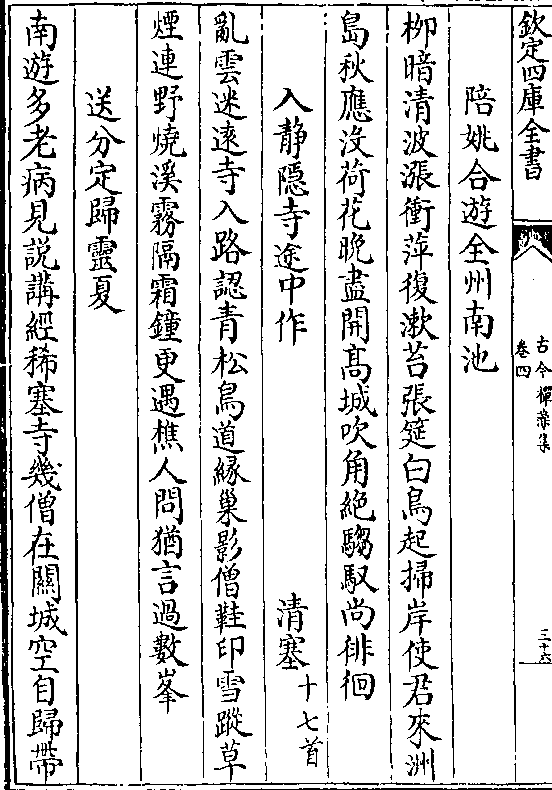 欽定四庫全書
古今禪藻集
卷四
三十六
陪姚合遊全州南池
栁暗清波漲衝萍復漱苔張筵白鳥起掃岸使君來洲
島秋應沒荷花晚盡開髙城吹角絶騶馭尚徘徊
入静隠寺途中作
清塞十七首
亂雲迷逺寺入路認青松鳥道縁巢影僧鞋印雪蹤草
煙連野燒溪霧隔霜鐘更遇樵人問猶言過數峯
送分定歸靈夏
南遊多老病見説講經稀塞寺幾僧在關城空自歸帶